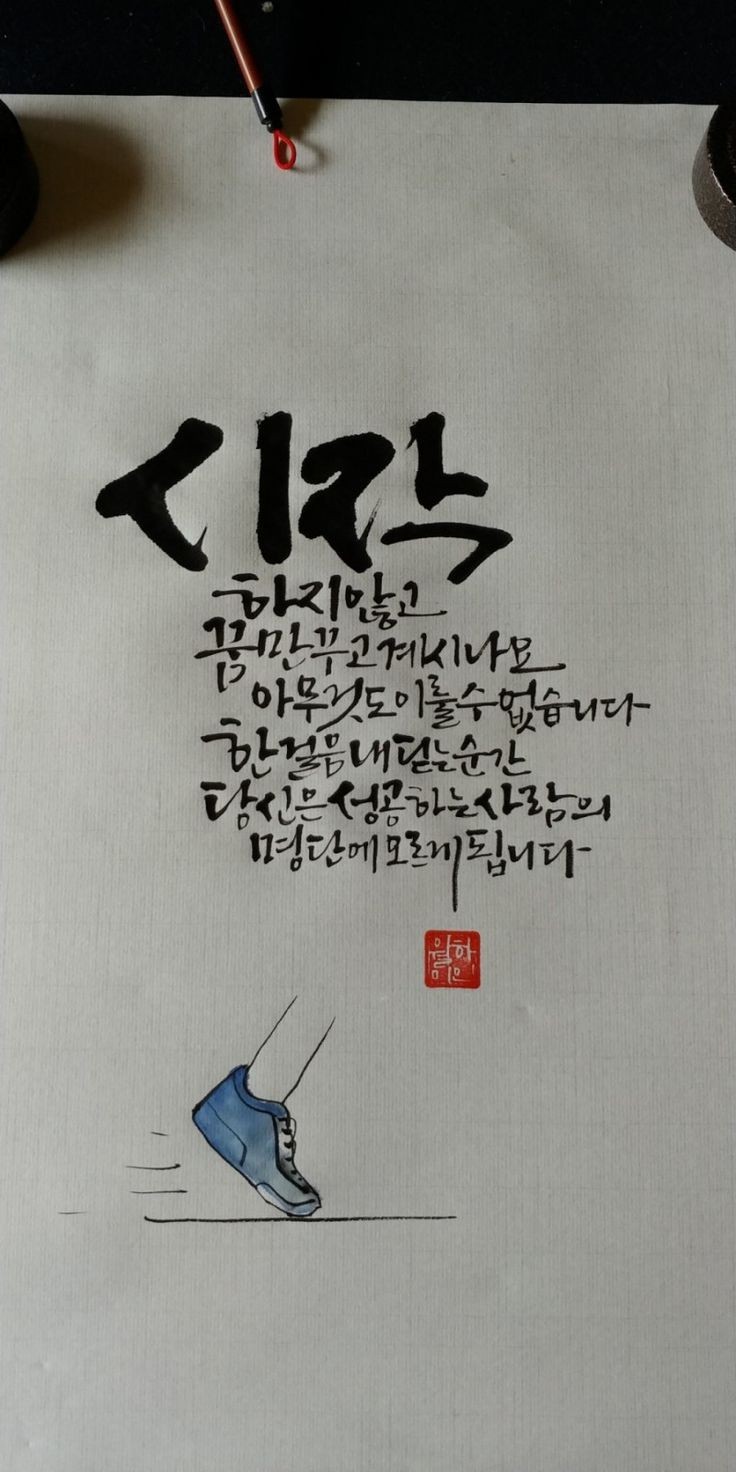 시작
하지않고
꿈만꾸고계시나요
아무것도이룰수없습니다
한걸음내딛는순간
당신은성공하는사람의
명단에오르게됩니다